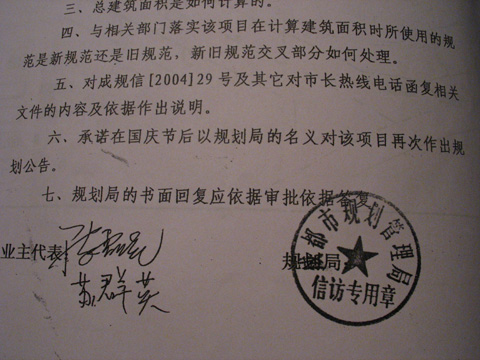 三、总建筑面积是如何计算的。
四、与相关部门落实该项目在计算建筑面积时所使用的规
范是新规范还是旧规范，新旧规范交叉部分如何处理。
五、对成规信[2004]29号及其它对市长热线电话函复相关
文件的内容及依据作出说明。
六、承诺在国庆节后以规划局的名义对该项目再次作出规
划公告。
七、规划局的书面回复应依据审批依据答复
业主代表
群英
规划局
成都市规划管理局
信访专用章